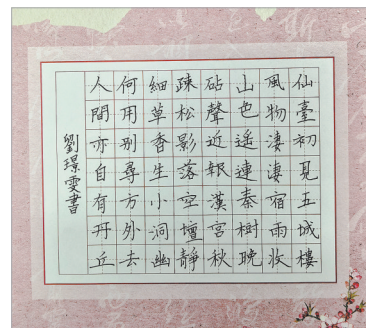 仙臺初見五城樓
風物淒淒宿雨收
山色遙連秦樹晚
砧聲近報漢宮秋
疎松影落空壇靜
細草香生小洞幽
何用別尋方外去
人間亦自有丹丘
劉璟雯書